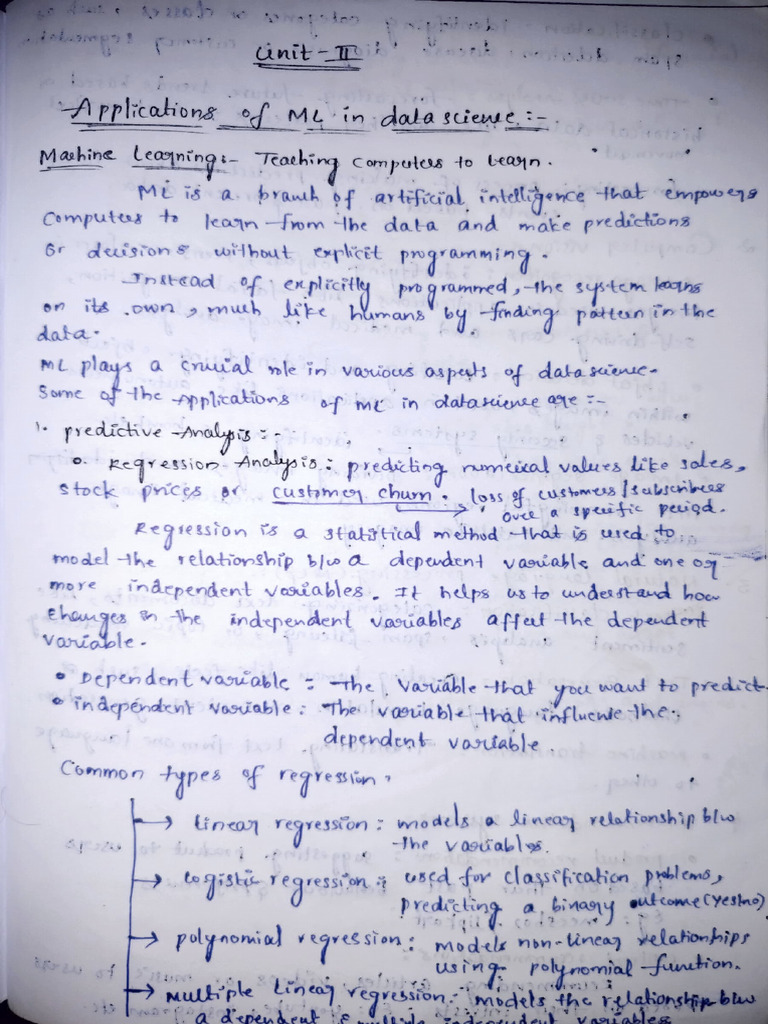 Unit-II
Applications of ML in data science :-
Machine Learning:- Teaching Computers to learn.
ML is a branch of artificial intelligence that empowers
Computers to learn from the data and make predictions
or decisions without explicit programming.
Instead of explicitly programmed, the system learns
on its own, much like humans by finding pattern in the
data.
ML plays a crucial role in various aspects of data science.
Some of the Applications of ML in datascience are :-
1. predictive Analysis :-
o Regression Analysis : predicting numerical values like sales,
stock prices or customer churn. → loss of customers/subscribers
over a specific period.
Regression is a statistical method that is used to
model the relationship b/w a dependent variable and one or
more independent variables. It helps us to understand how
changes in the independent variables affect the dependent
variable.
• Dependent variable : The variable that you want to predict.
• independent variable : The variable that influence the
dependent variable.
Common types of regression.
→ linear regression : models a linear relationship b/w
the variables.
→ Logistic regression : used for classification problems,
predicting a binary outcome (yes/no)
→ polynomial regression : models non-linear relationships
using polynomial function.
→ Multiple Linear regression : models the relationship b/w
a dependent & multiple independent variables